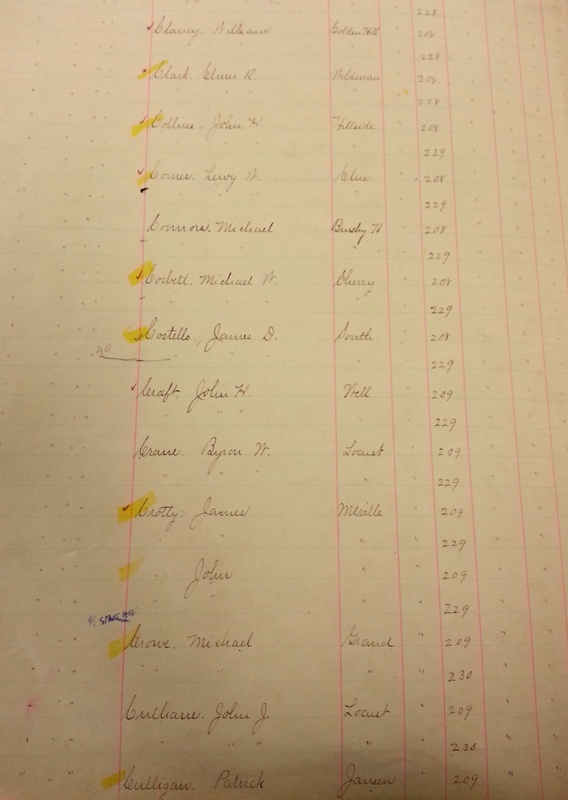 228
Clancy. William Golden Hill 208
228
Clark. Elmer R. Wildman 208
228
Collins. John H. Hillside " 208
229
Comes. Levy W. Elm " 208
229
Connors. Michael Beasley St " 208
229
Corbett. Michael W. Cherry " 208
" " 229
Costello. James D. South " 208
40 " " 229
Craft. John H. Well " 209
" " 229
Crane. Byron W. Locust " 209
" " " 229
Crotty. James Melville " 209
" " " 229
John " " 209
" " " 229
Crowe. Michael Grand " 209
" " " " 230
Culhane. John J. Locust " 209
" " " " 230
Culligan. Patrick James " 209